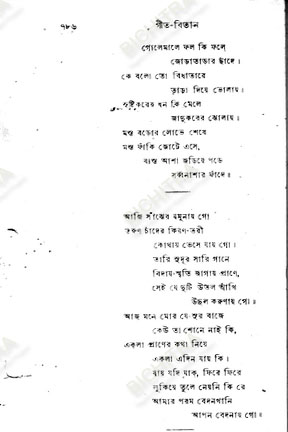 ৭৮৬
গীত-বিতান
গোলেমালে ফল কি ফলে
জোড়াতাড়ার ছাঁদে।
কে বলো তো বিধাতারে
তাড়া দিয়ে ভোলায়।
সৃষ্টিকরের ধন কি মেলে
জাদুকরের ঝোলায়।
মস্ত বড়োর লোভে শেষে
মস্ত ফাঁকি জোটে এসে,
ব্যস্ত আশা জড়িয়ে পড়ে
সর্বনাশার ফাঁদে॥
আজি সাঁঝের যমুনায় গো
তরুণ চাঁদের কিরণ-তরী
কোথায় ভেসে যায় গো।
তারি সুদূর সারি গানে
বিদায়-স্মৃতি জাগায় প্রাণে,
সেই যে দুটি উতল আঁখি
উছল করুণায় গো॥
আজ মনে মোর যে-সুর বাজে
কেউ তা শোনে নাই কি,
একলা প্রাণের কথা নিয়ে
একলা এদিন যায় কি।
যায় যদি যাক্, ফিরে ফিরে
লুকিয়ে তুলে নেয়নি কি রে
আমার পরম বেদনখানি
আপন বেদনায় গো॥
BICHITRA